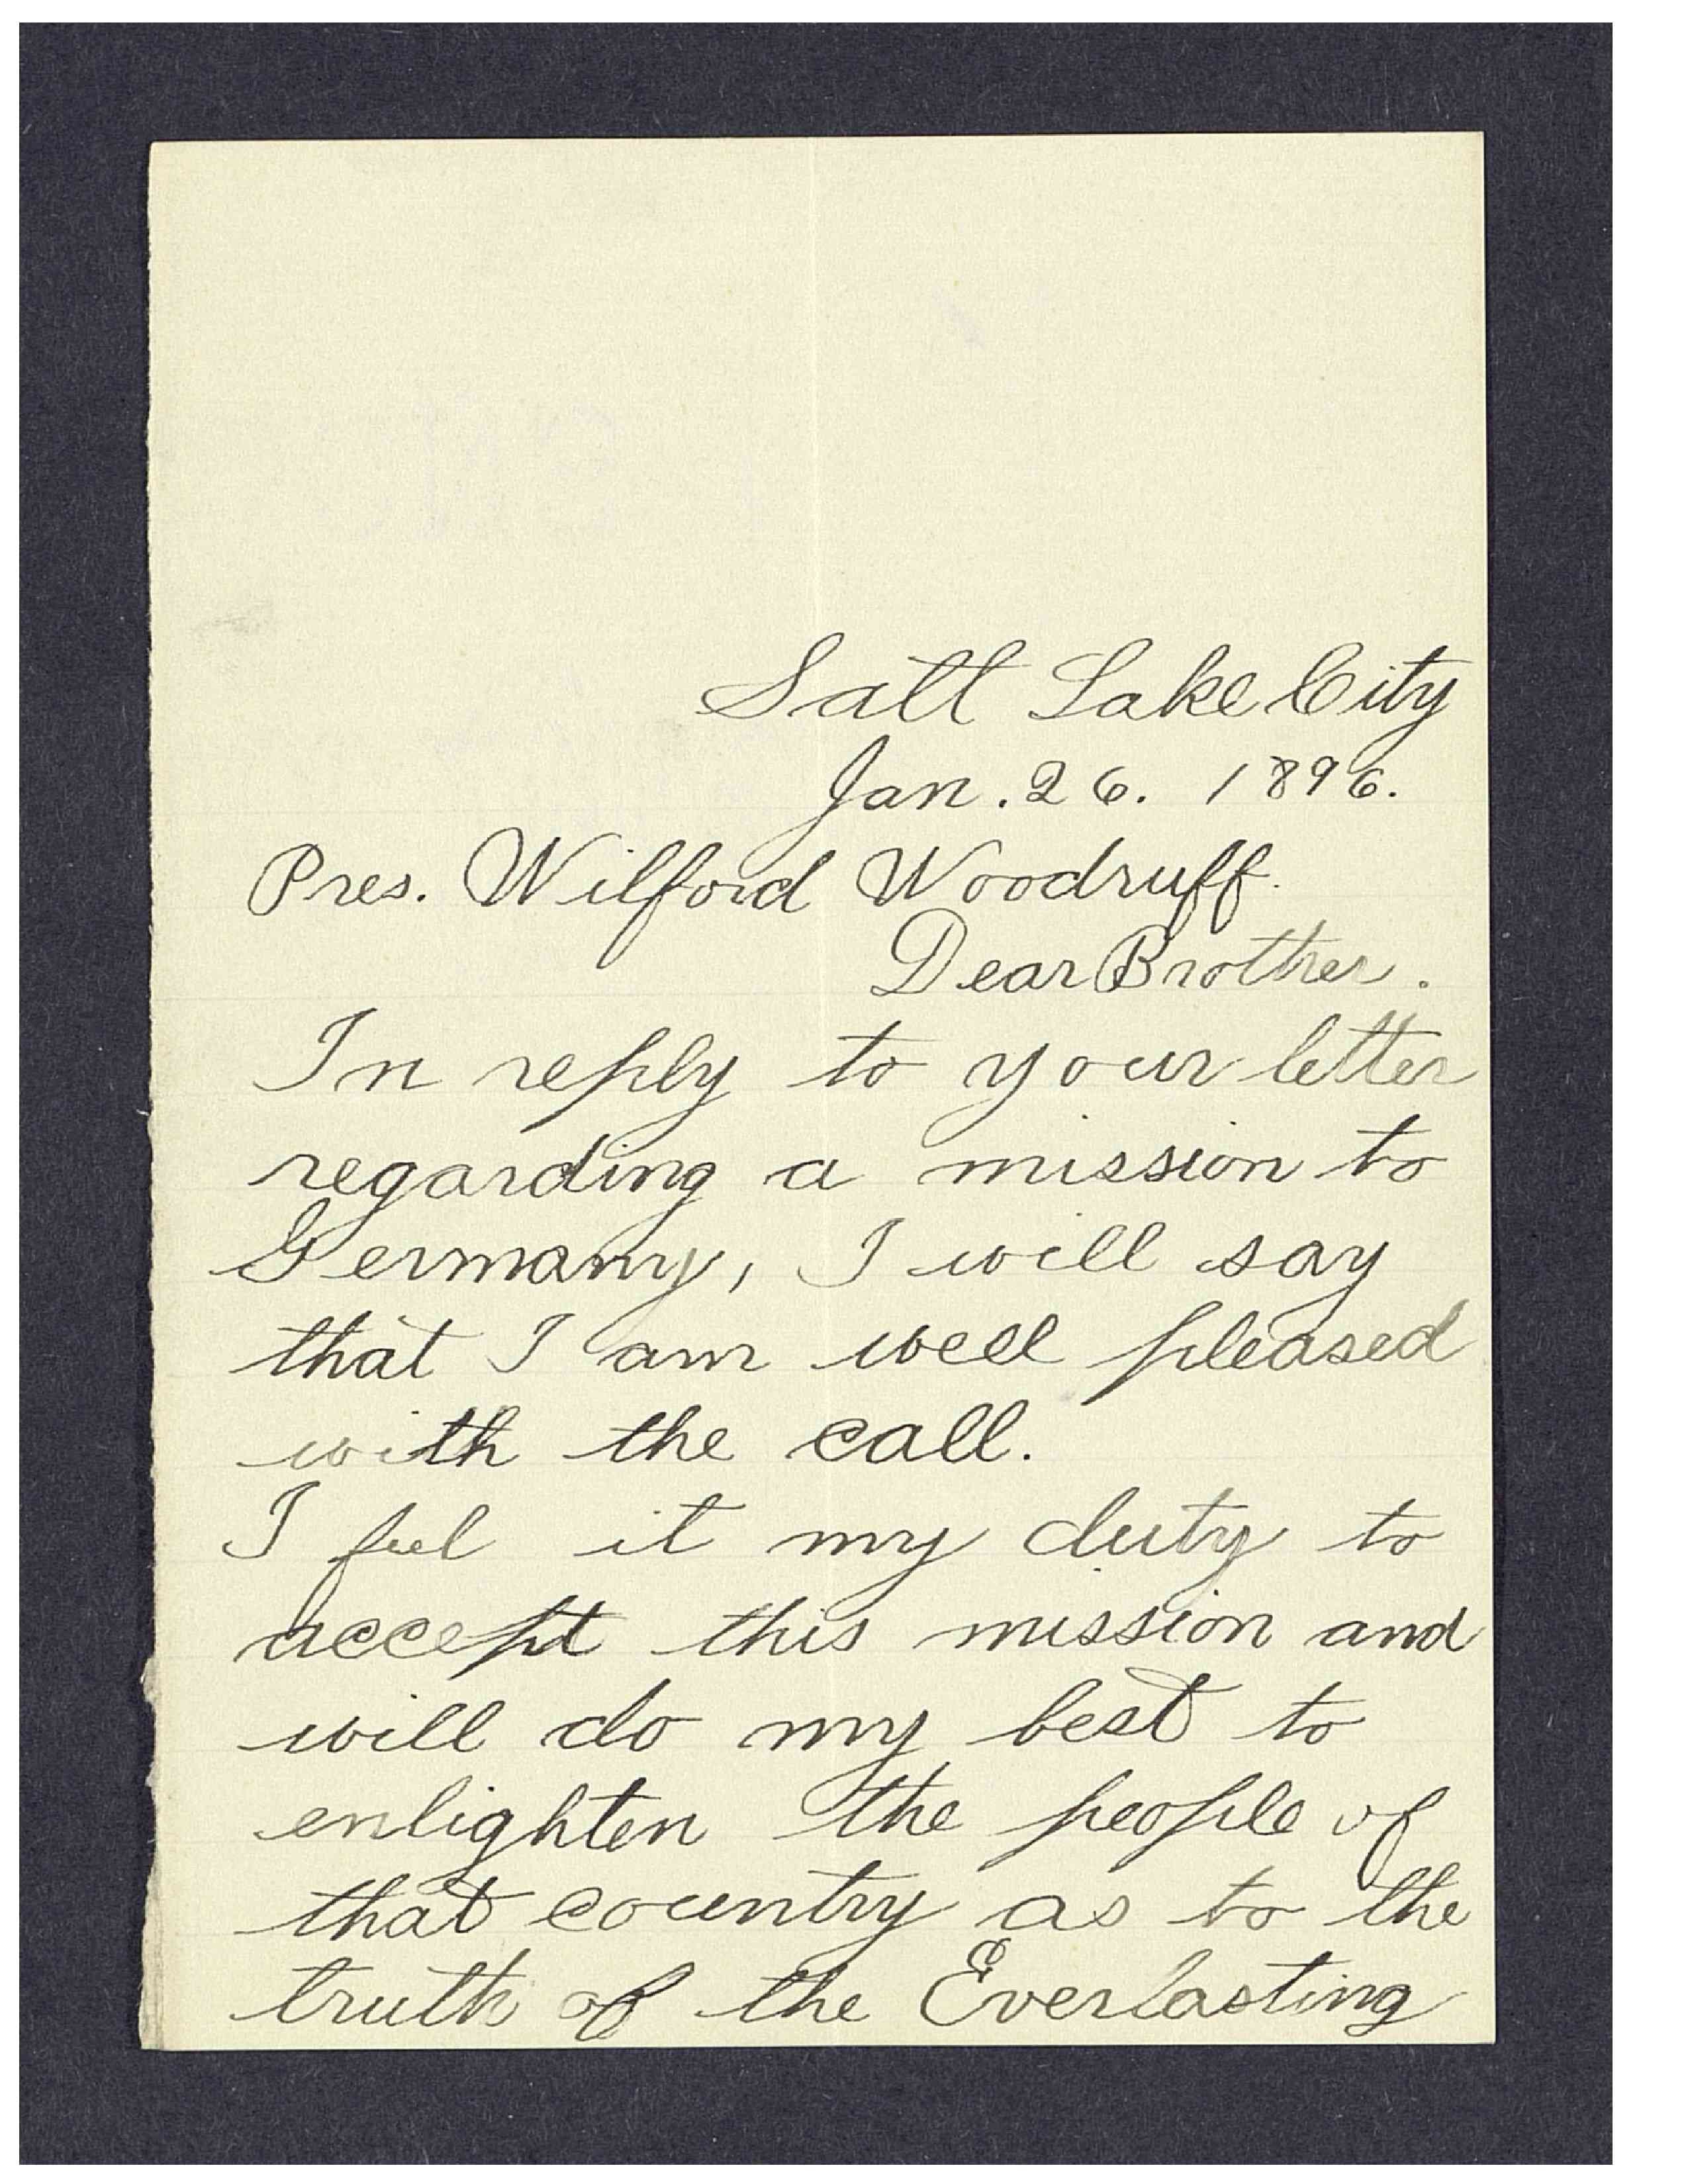 Salt Lake City
Jan. 26. 1896.
Pres. Wilford Woodruff.
Dear Brother.
In reply to your letter
regarding a mission to
Germany, I will say
that I am well pleased
with the call.
I feel it my duty to
accept this mission and
will do my best to
enlighten the people of
that country as to the
truth of the Everlasting